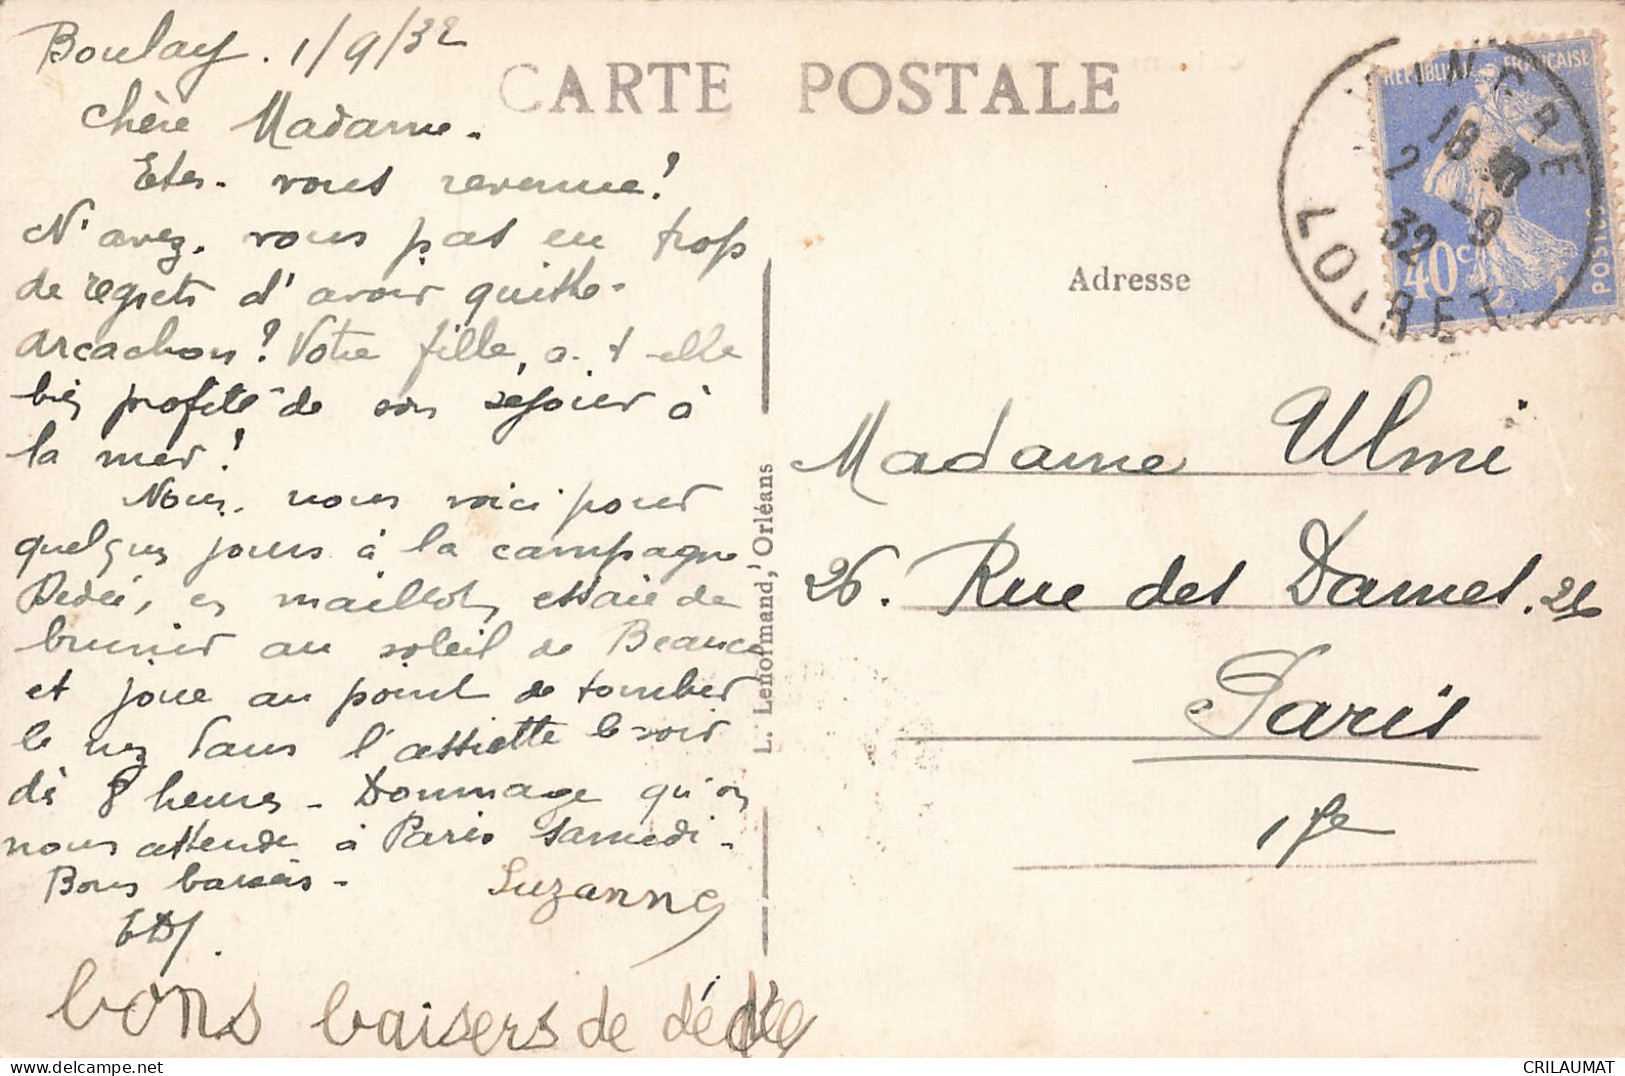 Boulay. 1/9/32
CARTE POSTALE
chère Madame.
Etes-vous revenue?
N'avez-vous pas eu trop
de regrets d'avoir quitté
arcachon? Votre fille, a-t-elle
bien profité de son séjour à
la mer?
Nous, nous voici pour
quelques jours à la campagne
Dédée, en maillot, essaie de
brunir au soleil de Beauce
et joue au point de tomber
le nez dans l'assiette le soir
dès 8 heures - Dommage qu'on
nous attende à Paris samedi -
Bons baisers -
Suzanne
bons baisers de dédée
L. Lenormand, Orléans
Adresse
Madame Ulmi
26. Rue des Dames. 26
Paris
17e
REPUBLIQUE FRANÇAISE
40c
POSTES
INGRE
18
2 -9
32
LOIRET
CRILAUMAT